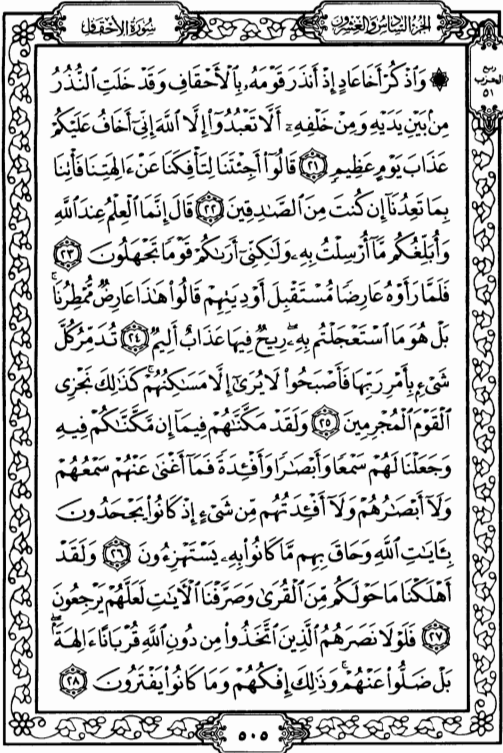 سُورَةُ الأَحْقَافِ
الجُزْءُ السَّادِسُ وَالعِشْرُونَ
ربع
الحزب
٥١
۞ وَاذْكُرْ أَخَا عَادٍ إِذْ أَنذَرَ قَوْمَهُ بِالْأَحْقَافِ وَقَدْ خَلَتِ النُّذُرُ
مِنْ بَيْنِ يَدَيْهِ وَمِنْ خَلْفِهِ أَلَّا تَعْبُدُوا إِلَّا اللَّهَ إِنِّي أَخَافُ عَلَيْكُمْ
عَذَابَ يَوْمٍ عَظِيمٍ ٢١ قَالُوا أَجِئْتَنَا لِتَأْفِكَنَا عَنْ ءَالِهَتِنَا فَأْتِنَا
بِمَا تَعِدُنَا إِن كُنتَ مِنَ الصَّادِقِينَ ٢٢ قَالَ إِنَّمَا الْعِلْمُ عِندَ اللَّهِ
وَأُبَلِّغُكُم مَّا أُرْسِلْتُ بِهِ وَلَٰكِنِّي أَرَىٰكُمْ قَوْمًا تَجْهَلُونَ ٢٣
فَلَمَّا رَأَوْهُ عَارِضًا مُّسْتَقْبِلَ أَوْدِيَتِهِمْ قَالُوا هَٰذَا عَارِضٌ مُّمْطِرُنَا
بَلْ هُوَ مَا اسْتَعْجَلْتُم بِهِ رِيحٌ فِيهَا عَذَابٌ أَلِيمٌ ٢٤ تُدَمِّرُ كُلَّ
شَيْءٍ بِأَمْرِ رَبِّهَا فَأَصْبَحُوا لَا يُرَىٰ إِلَّا مَسَٰكِنُهُمْ كَذَٰلِكَ نَجْزِي
الْقَوْمَ الْمُجْرِمِينَ ٢٥ وَلَقَدْ مَكَّنَّٰهُمْ فِيمَا إِن مَّكَّنَّٰكُمْ فِيهِ
وَجَعَلْنَا لَهُمْ سَمْعًا وَأَبْصَٰرًا وَأَفْئِدَةً فَمَا أَغْنَىٰ عَنْهُمْ سَمْعُهُمْ
وَلَا أَبْصَٰرُهُمْ وَلَا أَفْئِدَتُهُم مِّن شَيْءٍ إِذْ كَانُوا يَجْحَدُونَ
بِـَٔايَٰتِ اللَّهِ وَحَاقَ بِهِم مَّا كَانُوا بِهِ يَسْتَهْزِءُونَ ٢٦ وَلَقَدْ
أَهْلَكْنَا مَا حَوْلَكُم مِّنَ الْقُرَىٰ وَصَرَّفْنَا الْآيَٰتِ لَعَلَّهُمْ يَرْجِعُونَ
٢٧ فَلَوْلَا نَصَرَهُمُ الَّذِينَ اتَّخَذُوا مِن دُونِ اللَّهِ قُرْبَانًا ءَالِهَةً
بَلْ ضَلُّوا عَنْهُمْ وَذَٰلِكَ إِفْكُهُمْ وَمَا كَانُوا يَفْتَرُونَ ٢٨
٥٠٥